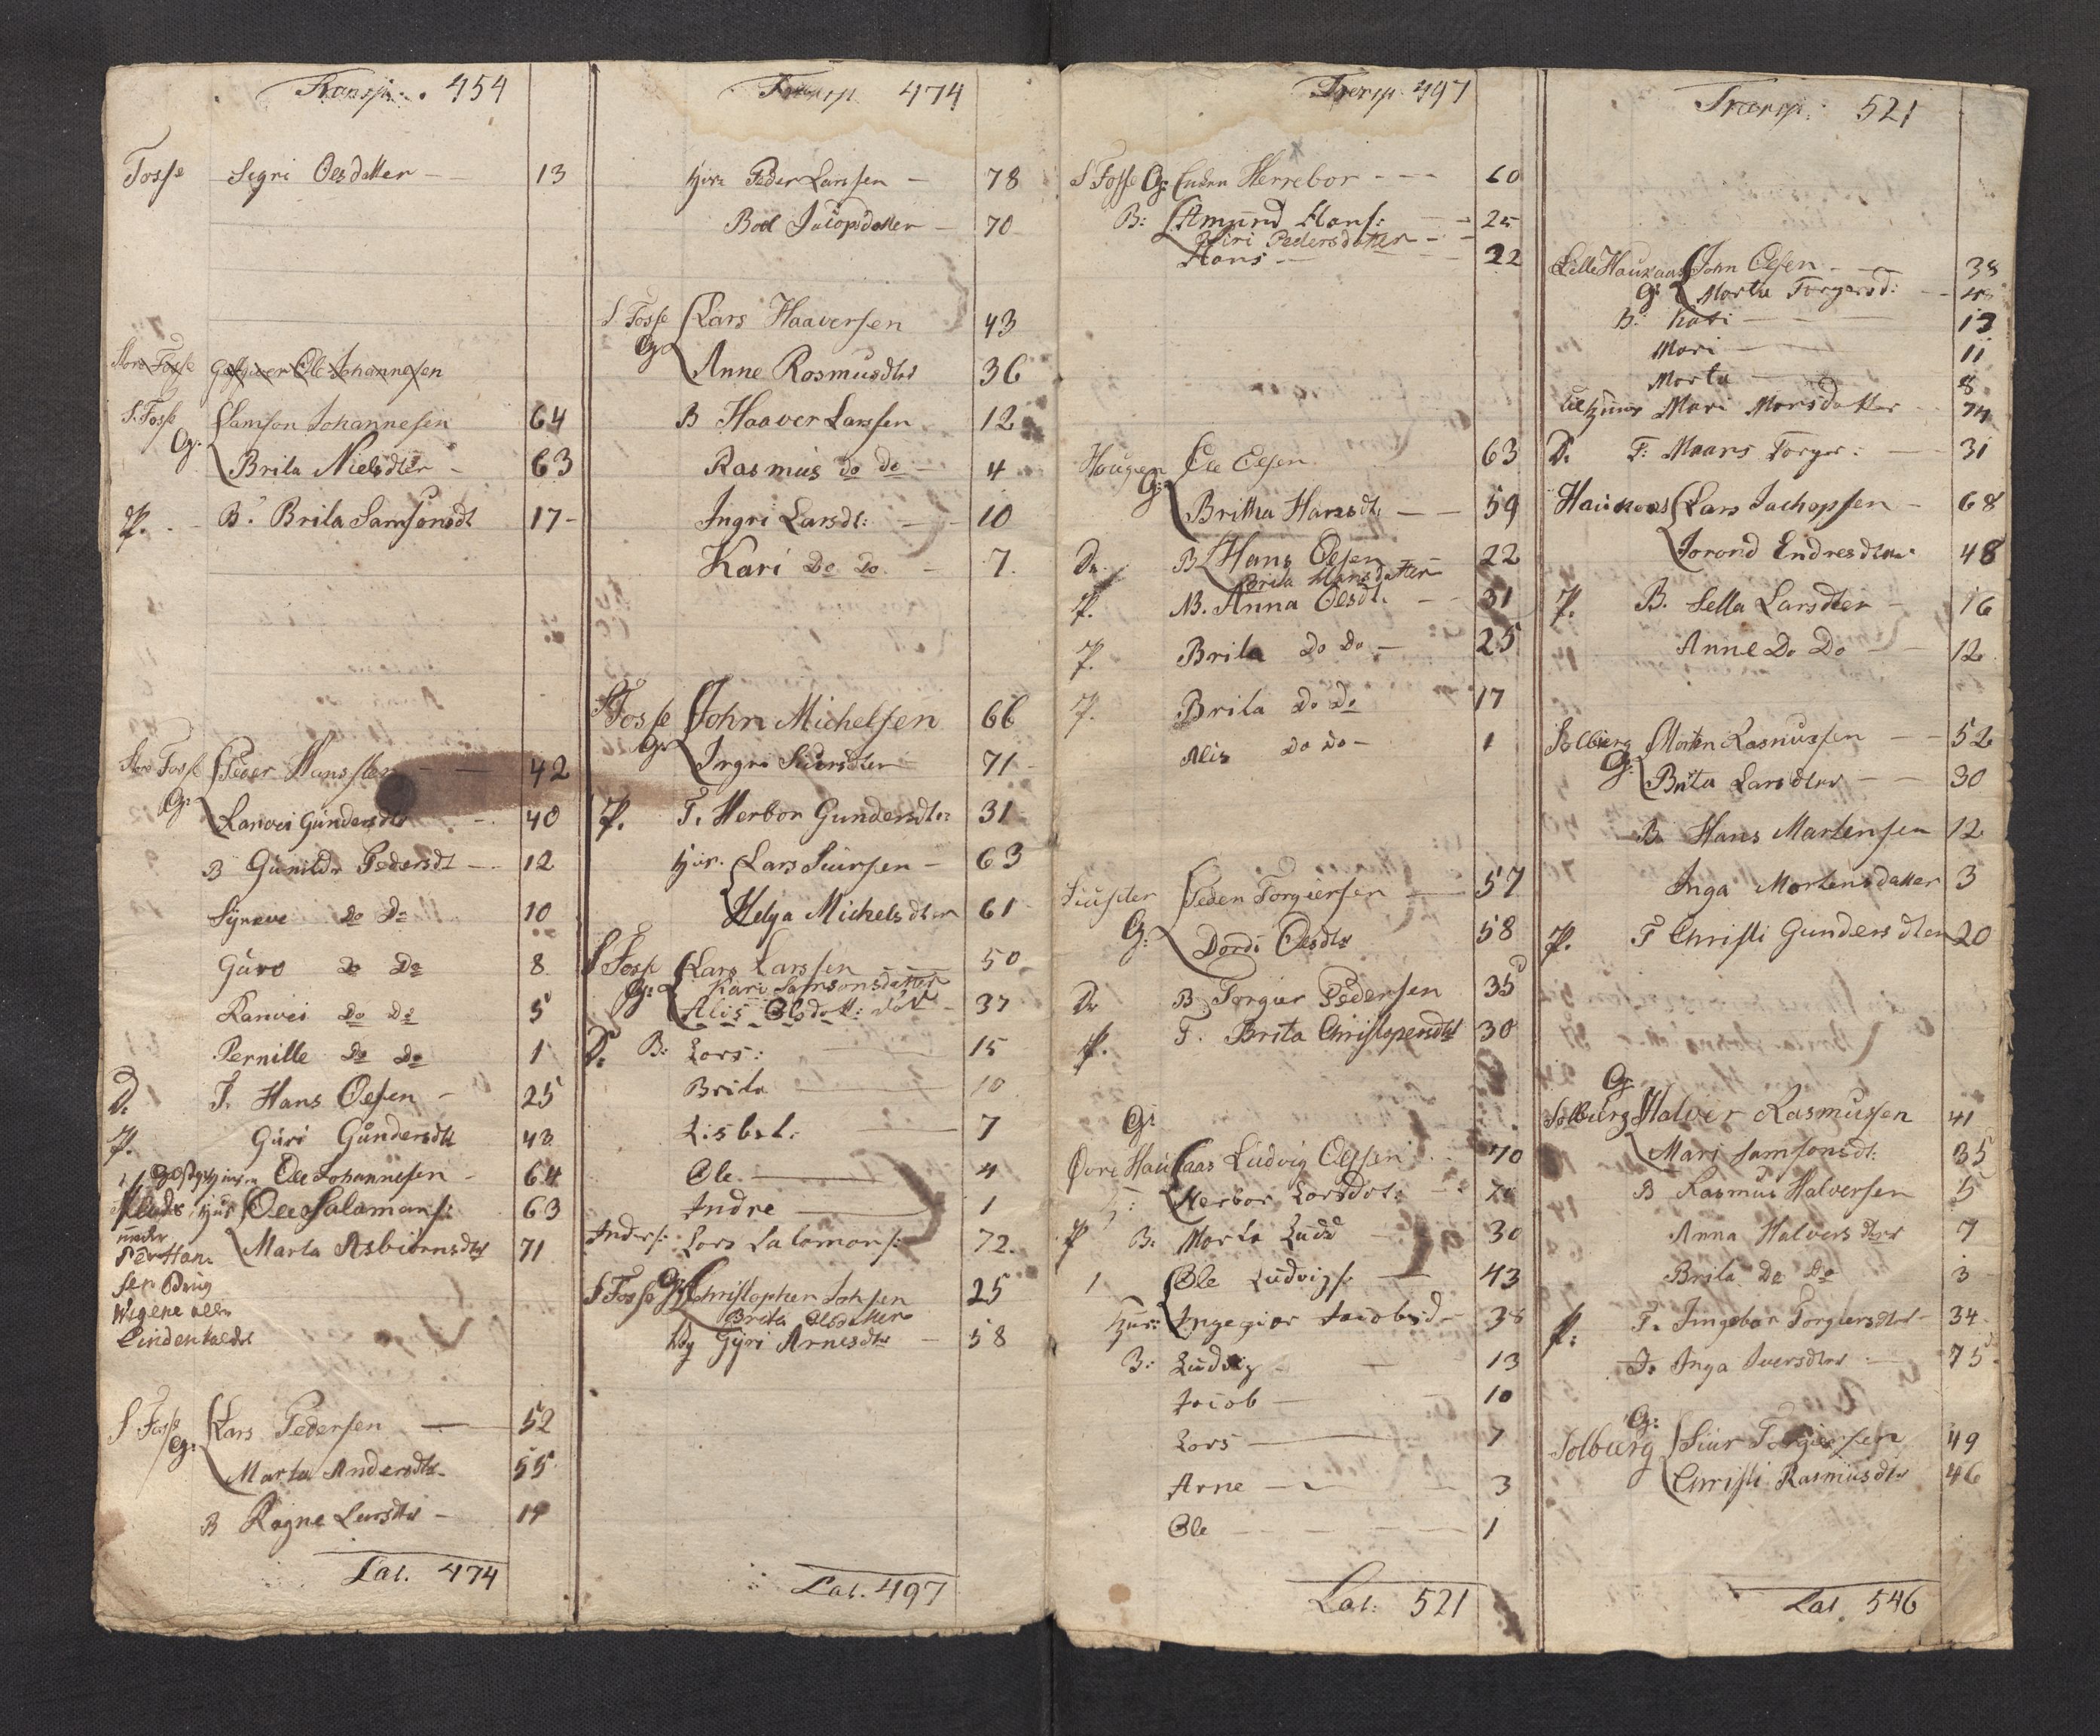 Transp: 454
Fosse Sigri Olesdatter 13
Store Fosse Gaardbruger Ole Johannesen
S. Fosse Samson Johannesen 64
G: Brita Nielsdter 63
P. B. Brita Samsonsdt 17
Store Fosse Peder Hanssen 42
G: Ranvei Gundersdtr 40
B Gunilda Pedersdt 12
Synneve Do Do 10
Guro Do Do 8
Ranvei Do Do 5
Pernille Do Do 1
D. T. Hans Olesen 25
P. Guri Gundersdtr 43
Ole Johannesen 64
Huus Ole Salamons: 63
under Marta Asbiørnsdtr 71
Peder Han
sen Brug
Wigene eller
Lindenkaldet
S Fosse Lars Pedersen 52
G: Marta Andersdtr 55
B Ragne Larsdtr 19
Lat. 474
Transp 474
Huus Peder Larssen 78
Boel Jacopsdatter 70
S Fosse Lars Haaversen 43
G: Anne Rasmusdtr 36
B Haaver Larssen 12
Rasmus do do 4
Ingri Larsdt: 10
Kari Do Do 7
S Fosse John Michelsen 66
G: Ingri Siursdter 71
P. T. Herbor Gundersdtr 31
Huus. Lars Siursen 63
Helga Michelsdter 61
S Fosse Lars Larssen 50
G: Kari Samsonsdatter
Alis Olsdatt: død 37
D: B: Lars: 15
Brita 10
Lisbet: 7
Ole 4
Andre 1
Inders: Lars Salomons: 72
S Fosse G: Christopher Johsen 25
Brita Olsdatter
Gyri Arnesdtr 58
Lat. 497
Transp. 497
S Fosse G: Enken Herrebor 60
B: Amund Hans: 25
Giri Pedersdatter
Hans 22
Hougen Ole Olesen 63
G: Britha Hansdt. 59
D. B Hans Olesen 22
Brita Hansdatter
P. B. Anna Olesdt. 31
P. Brita Do Do 25
P. Brita Do Do 17
Alis Do Do 1
Peder Torgiersen 57
G: Dordi Olesdtr 58
D B Torgier Pedersen 35
P. T. Brita Christopersdtr 30
G:
Øvre Haukaas Ludvig Olessen 70
Herbor Larsdot:
P B: Marta Luds 30
1 Ole Ludvigs: 43
Huus: Ingegior Jacobsd 38
B: Ludvig 13
Jacob 10
Lars 7
Arne 3
Ole 1
Lat: 521
Transp: 521
Lille Haukaas John Olesen 38
G: Marta Torgersd:
B: Kari 13
Mari 11
Marta 8
Mari Monsdatter 74
D. T: Maans Torger: 31
Haukaas Lars Jachopsen 68
Jorond Endresdtter 48
P. B. Sella Larsdter 16
Anne Do Do 12
Solberg Morten Rasmussen 52
G: Brita Larsdter 30
B Hans Martensen 12
Inga Mortensdatter 3
P. T Christi Gundersdter 20
G:
Solberg Halver Rasmussen 41
Mari Samsonsdt. 35
B Rasmus Halversen 5
Anna Halversdter 7
Brita Do Do 3
P: T. Ingebor Torgiersdtr 34
J. Inga Iversdter 75
G:
Solberg Siur Torgiersen 49
Christi Rasmusdtr 46
Lat. 546